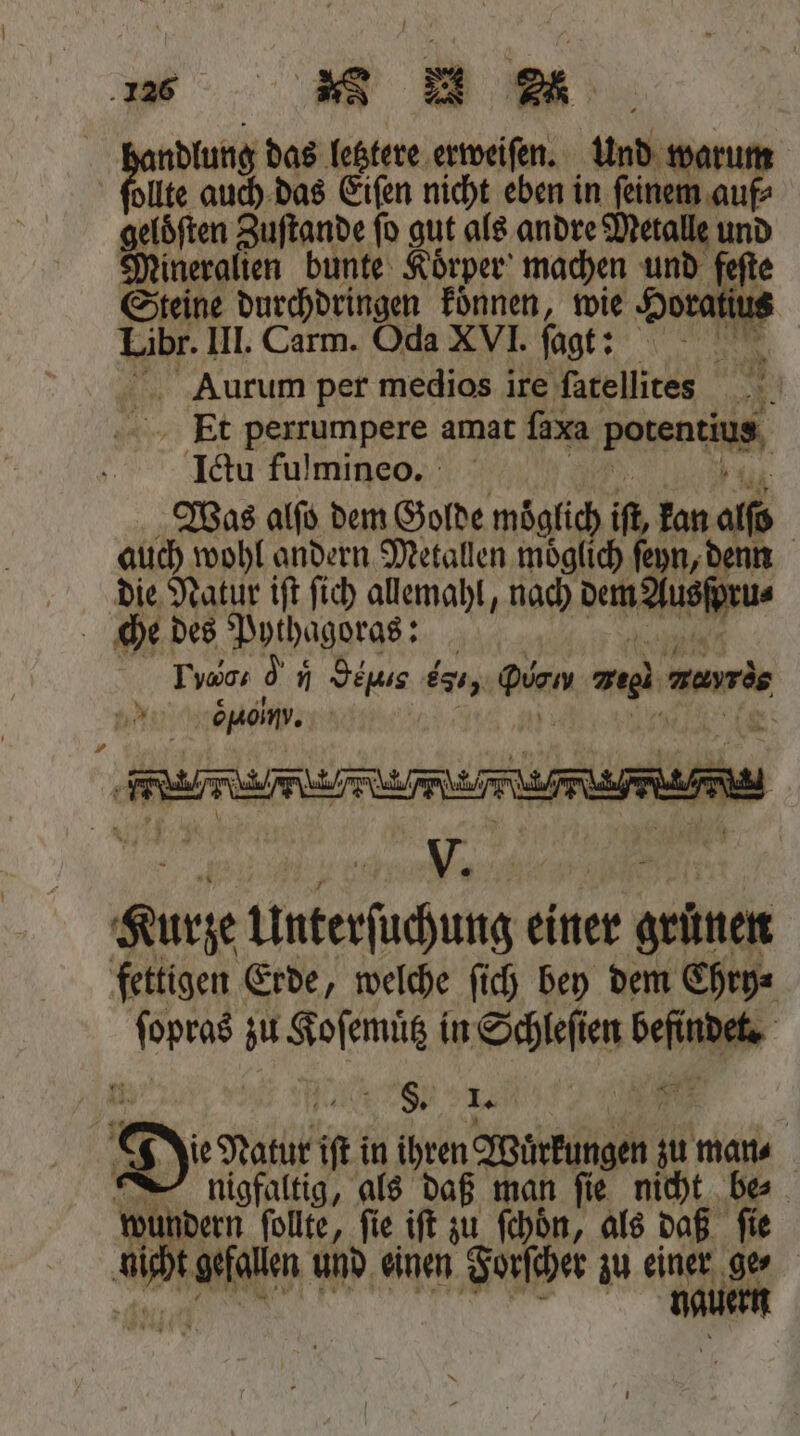 126
handlung das letztere erweiſen. Und warum
ſollte auch das Eiſen nicht eben in ſeinem auf⸗
geloͤſten Zuſtande ſo gut als andre Metalle und
Mineralien bunte Koͤrper machen und feſte
Steine durchdringen koͤnnen, wie Horatius
Libr. III. Carm. Oda XVI. ſagt:
Aurum per medios ire ſatellites
Et perrumpere amat ſaxa potentius
Ictu fulmineo.
Was alſo dem Golde moͤglich iſt, kan alſo
auch wohl andern Metallen moͤglich ſeyn, denn
die Natur iſt ſich allemahl, nach dem Ausſpru⸗
che des Pythagoras:
Γνώσῃ δ᾽ ἣ θέμις ἐςι, Φύσιν περὶ παντὸς
ὁμοίην.
V.
Kurze Unterſuchung einer gruͤnen
fettigen Erde, welche ſich bey dem Chry⸗
ſopras zu Koſemuͤtz in Schleſien befindet.
§. 1.
Die Natur iſt in ihren Wuͤrkungen zu man⸗
nigfaltig, als daß man ſie nicht be⸗
wundern ſollte, ſie iſt zu ſchoͤn, als daß ſie
nicht gefallen und einen Forſcher zu einer ge⸗
nauern